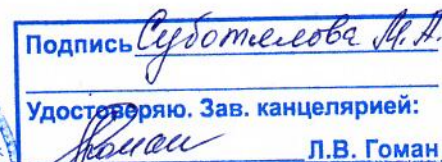 Подпись Суботялова М.А.
Удостоверяю. Зав. канцелярией:
Гоман Л.В. Гоман